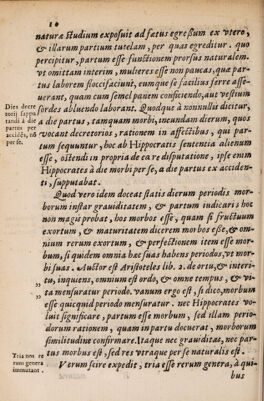 10
natura studium exposuit ad fœtus egressum ex vtero,
& illarum partum tutelam, per quas egreditur. quo
percipitur, partum esse functionem prorsus naturalem.
vt omittam interim, mulieres esse non paucas, quæ par-
tus laborem floccifaciunt, eumque se facilius ferre asse-
uerant, quam cum semel panem conficiendo, aut vestium
sordes abluendo laborant. Quodque à nonnullis dicitur,
a die partus, tamquam morbi, ineundam dierum, quos
vocant decretorios, rationem in affectibus, qui par-
tum sequuntur, hoc ab Hippocratis sententia alienum
esse, ostendi in propria de ea re disputatione, ipse enim
Hippocrates à die morbi per se, a die partus ex acciden-
ti, supputabat.
Quod vero idem doceat statis dierum periodis mor-
borum instar grauiditatem, & partum iudicari: hoc
non magis probat, hos morbos esse, quam si fructuum
exortum, & maturitatem dicerem morbos esse, & om-
nium rerum exortum, & perfectionem item esse mor-
bum, si quidem omnia hæc suas habens periodos, vt mor-
bi suas. Auctor est Aristoteles lib. 2. de ortu, & interi-
tu, inquiens, omnium est ordo, & omne tempus, & vi-
ta mensuratur periodo. vanum ergo est, si dico, morbum
esse quicquid periodo mensuratur. nec Hippocrates vo-
luit significare, partum esse morbum, sed illam perio-
dorum rationem, quam in partu docuerat, morborum
similitudine confirmare. Itaque nec grauiditas, nec par-
tus morbus est, sed res vtraque per se naturalis est.
Verum scire expedit, tria esse rerum genera, à qui-
bus
Dies decre
torij suppu
tandi à die
partus per
accidēs, nō
per se.
„
„
Tria nos re
rum genera
immutant.